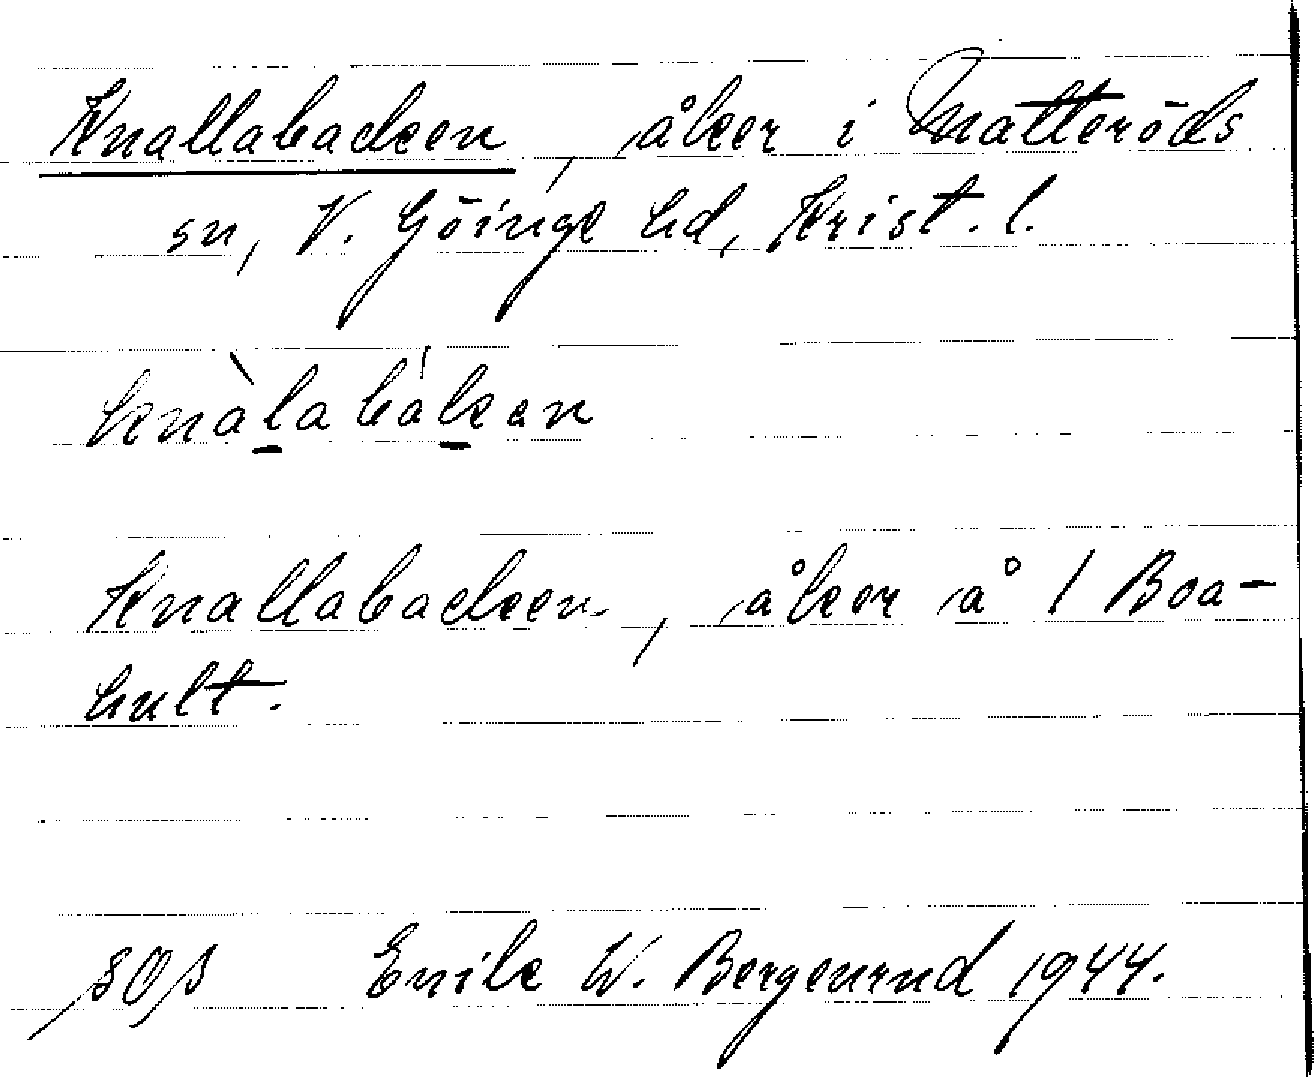 Knallabacken, åker i Matteröds
sn, V. Göinge hd, Krist. l.
knàlabákan
Knallabacken, åker å 1 Boa-
hult.
Erik W. Bergenrud 1944.